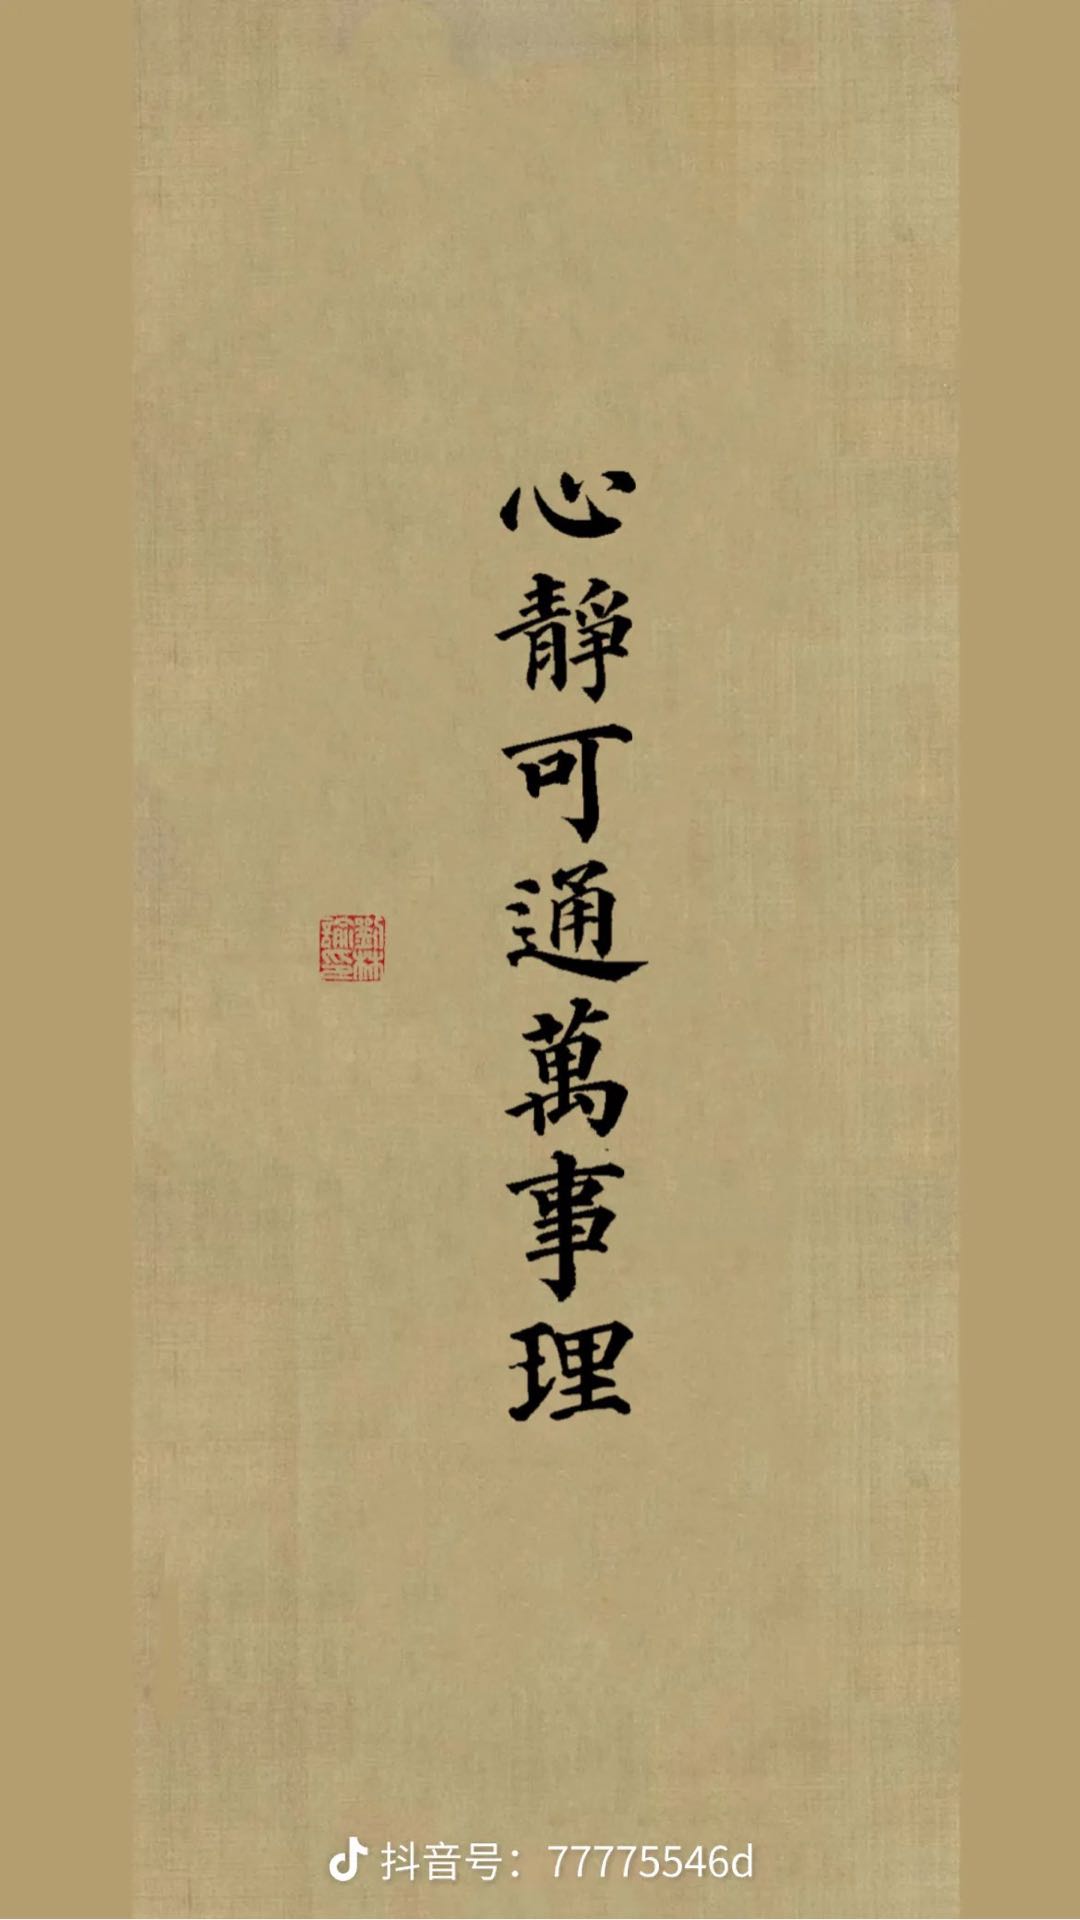 心靜可通萬事理
劉林
諭印
抖音号：77775546d